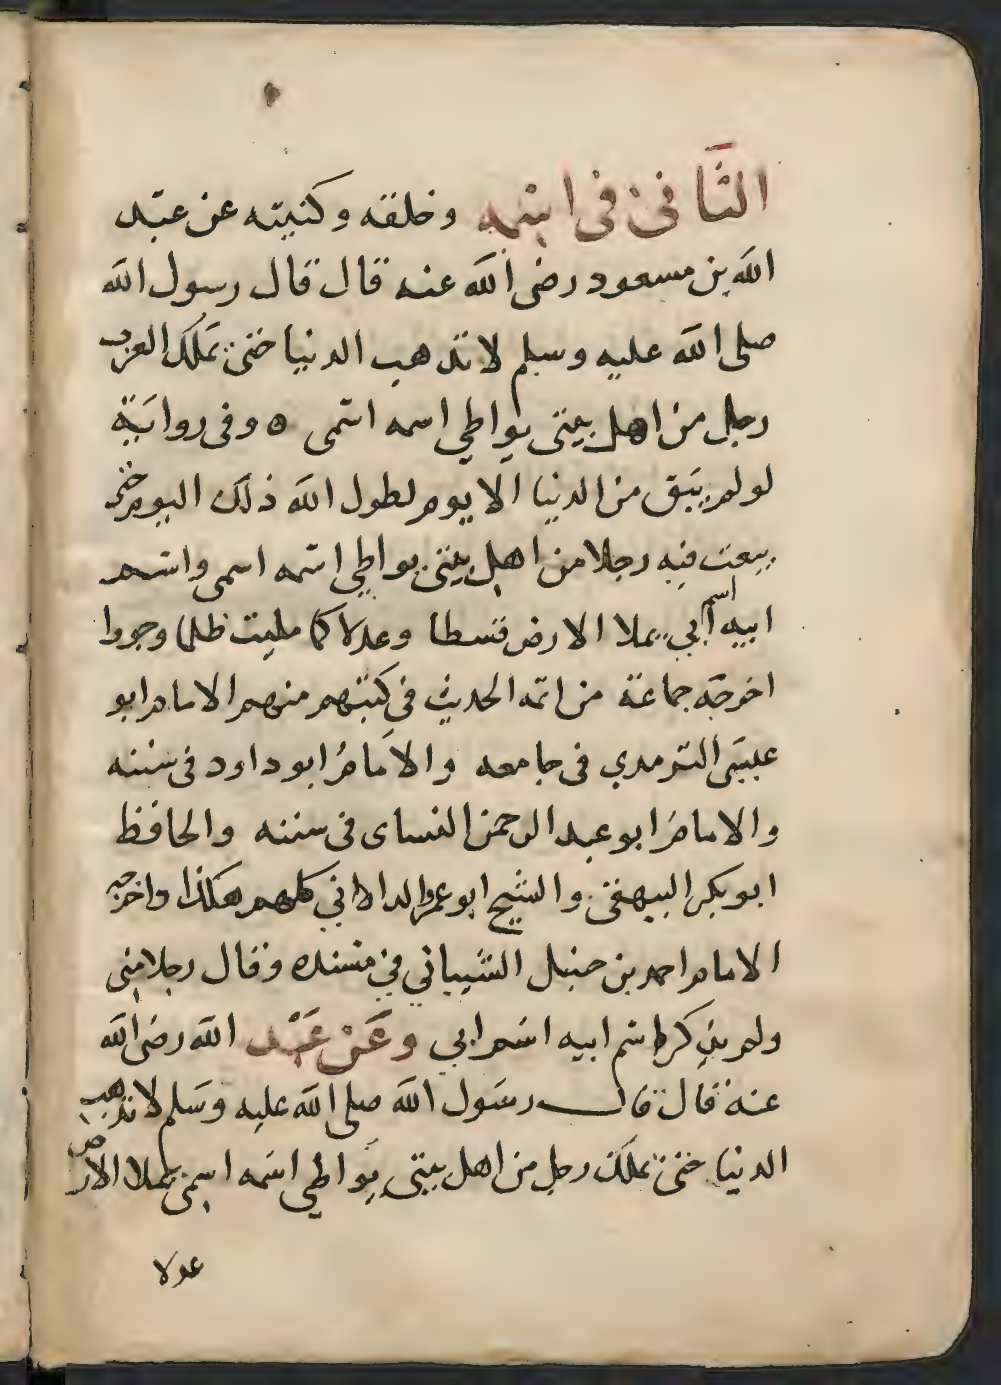 الثانى فى اسمه وخلقه وكنيته عن عبد
الله بن مسعود رضى الله عنه قال قال رسول الله
صلى الله عليه وسلم لا تذهب الدنيا حتى يملك العرب
رجل من اهل بيتى يواطي اسمه اسمى ه وفى رواية
لو لم يبق من الدنيا الا يوم لطول الله ذلك اليوم حتى
يبعث فيه رجلا من اهل بيتى يواطي اسمه اسمى واسم
ابيه اسم أبي يملا الارض قسطا وعدلا كما مليت ظلما وجورا
اخرجه جماعة من ائمه الحديث فى كتبهم منهم الامام ابو
عيسَى الترمدي فى جامعه والامامُ ابو داود فى سننه
والامام ابو عبد الرحمن النساى فى سننه والحافظ
ابو بكر البيهقى والشيخ ابو عمرو الدانى كلهم هكذا واخرجه
الامام احمد بن حنبل الشيباني في مسنده وقال رجلا منى
ولم يذكر اسم ابيه اسم ابي وَعَنْ عَبْد الله رضى الله
عنه قال قال رسَول الله صلى الله عليه وسَلم لا تذهب
الدنيا حتى يملك رجل من اهل بيتى يواطي اسمه اسمى يملا الارض
عدلا